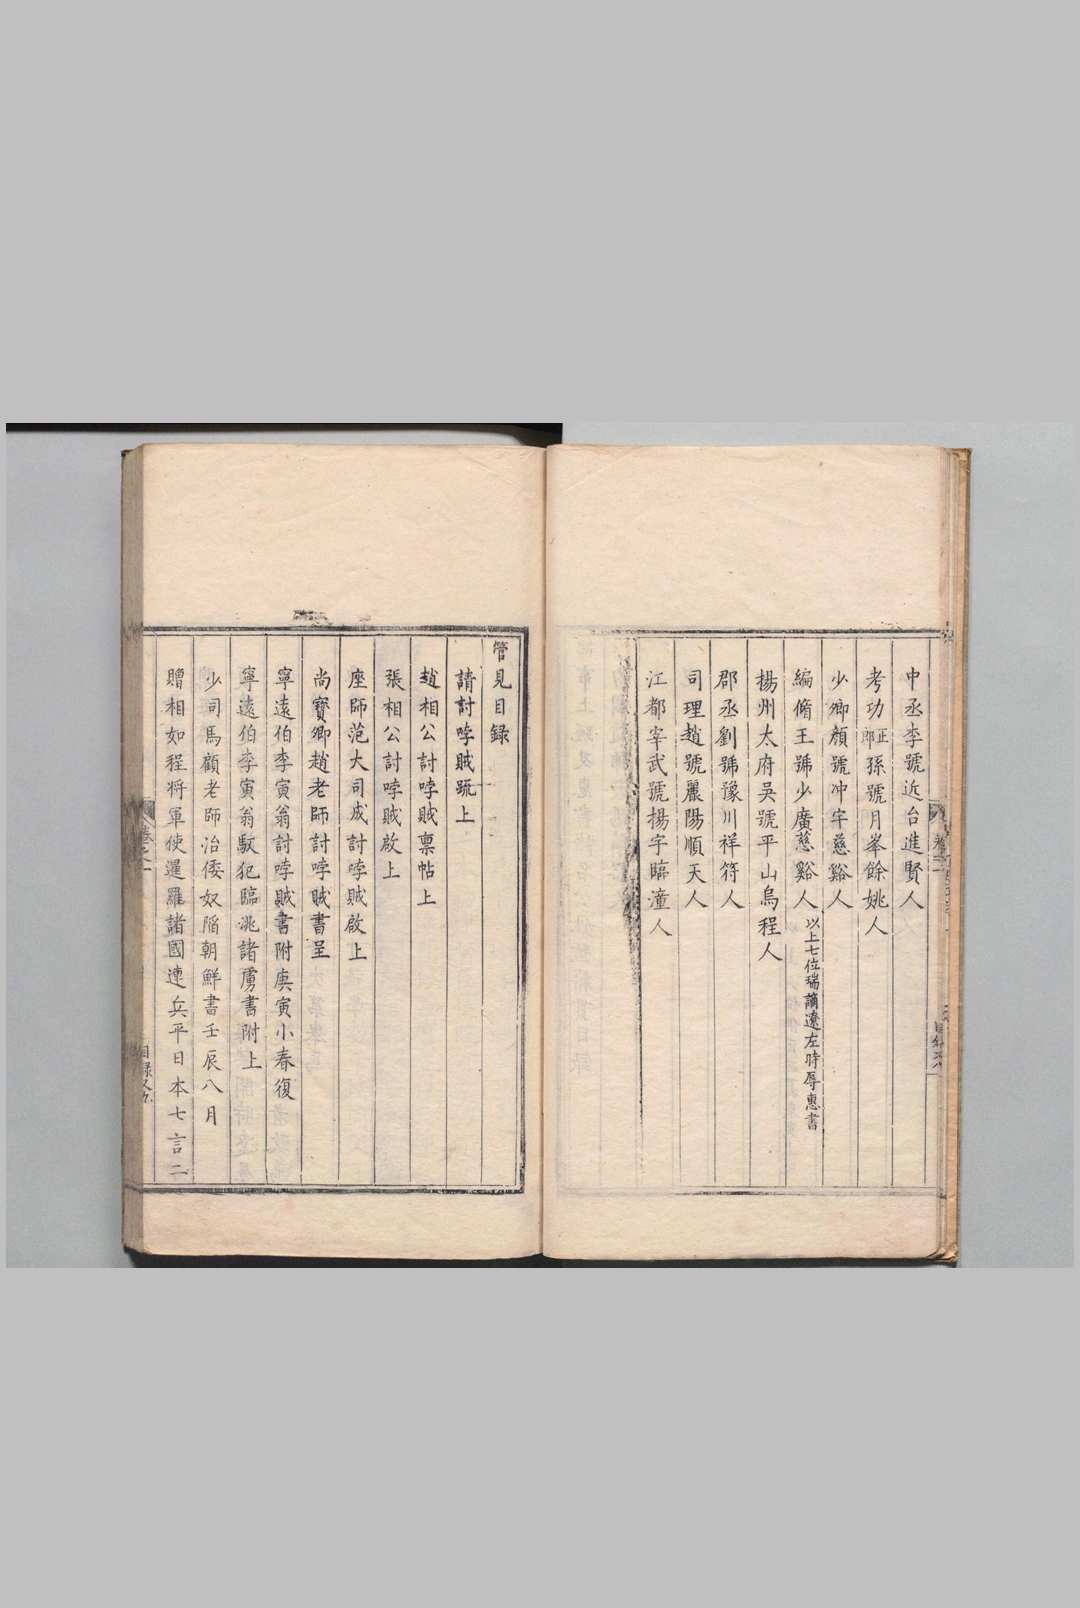 中丞李號近台進賢人
考功郎正孫號月峯餘姚人
少卿顏號冲宇慈谿人
編脩王號少廣慈谿人以上七位瑞謫遼左時辱惠書
揚州太府吳號平山烏程人
郡丞劉號豫川祥符人
司理趙號麗陽順天人
江都宰武號揚宇臨潼人
管見目録
請討哱賊疏上
趙相公討哱賊禀帖上
張相公討哱賊啟上
座師范大司成討哱賊啟上
尚寶卿趙老師討哱賊書呈
寧遠伯李寅翁討哱賊書附庚寅小春復
寧遠伯李寅翁馭犯臨洮諸虜書附上
少司馬顧老師治倭奴陷朝鮮書壬辰八月
贈相如程將軍使暹羅諸國連兵平日本七言二